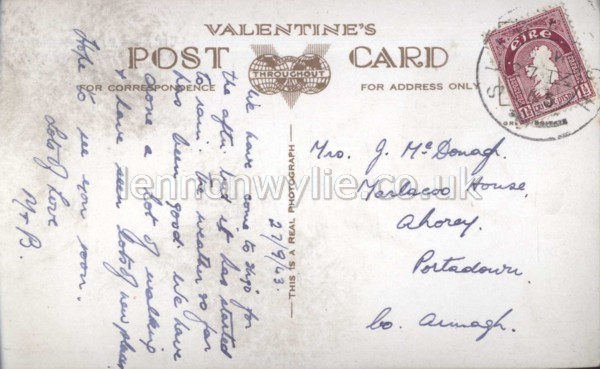 VALENTINE'S
POST CARD
THROUGHOUT
FOR CORRESPONDENCE
FOR ADDRESS ONLY
27/9/43.
We have come to Sligo for
the after. but it has started
to rain. The weather so far
has been good. We have
done a lot of walking
& have seen lots of new places
Hope to see you soon.
Lots of love
M & B.
THIS IS A REAL PHOTOGRAPH
éIRe
1½
Mrs. J. McDonagh.
Marlacoo House,
Ahorey.
Portadown
Co. Armagh.
lennonwylie.co.uk